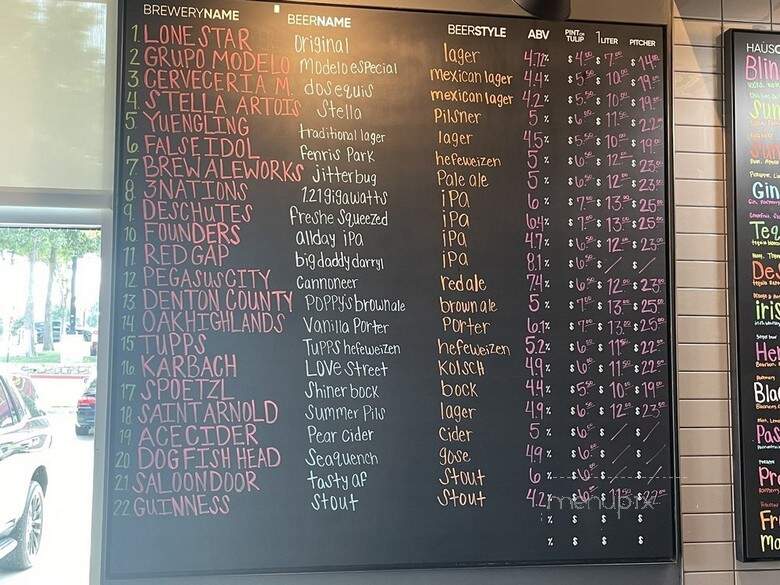 BREWERYNAME BEERNAME BEERSTYLE ABV PINT OR TULIP 1 LITER PITCHER
1. LONE STAR Original lager 4.7% $4.00 $7.00 $14.00
2 GRUPO MODELO Modelo especial mexican lager 4.4% $5.50 $10.00 $19.00
3 CERVECERIA M. dos equis mexican lager 4.2% $5.50 $10.00 $19.00
4 STELLA ARTOIS Stella Pilsner 5% $6.00 $11.50 $22.00
5 YUENGLING traditional lager lager 4.5% $5.50 $10.00 $19.00
6 FALSE IDOL Fenris Park hefeweizen 5% $6.50 $12.00 $23.00
7 BREW ALEWORKS jitterbug Pale ale 5% $6.50 $12.00 $23.00
8 3NATIONS 1.21 gigawatts iPA 6% $7.00 $13.00 $25.00
9 DESCHUTES freshe squeezed iPA 6.4% $7.00 $13.00 $25.00
10 FOUNDERS allday iPA iPA 4.7% $6.50 $12.00 $23.00
11 RED GAP big daddy darryl iPA 8.1% $6.50 $ / $ /
12 PEGASUS CITY Cannoneer red ale 7.4% $6.50 $12.00 $23.00
13 DENTON COUNTY POPPy's brown ale brown ale 5% $7.00 $13.00 $25.00
14 OAKHIGHLANDS Vanilla Porter Porter 6.1% $7.00 $13.00 $25.00
15 TUPPS TUPPS hefeweizen hefeweizen 5.2% $6.00 $11.50 $22.00
16 KARBACH LOVE Street KOlSCH 4.9% $6.00 $11.50 $22.00
17 SPOETZL Shiner bock bock 4.4% $5.50 $10.00 $19.00
18 SAINT ARNOLD Summer Pils lager 4.9% $6.50 $12.00 $23.00
19 ACE CIDER Pear cider Cider 5% $6.00 $ / $ /
20 DOGFISH HEAD Seaquench gose 4.9% $6.00 $ / $ /
21 SALOONDOOR tasty af Stout 6% $6.00 $ / $ /
22 GUINNESS Stout Stout 4.2% $6.00 $11.50 $22.00
% $ $ $
% $ $ $
menupix
HAUSC
Blin
Sun
Gin
Teq
De
iris
Her
Blac
Pas
Pro
Fro
Ma